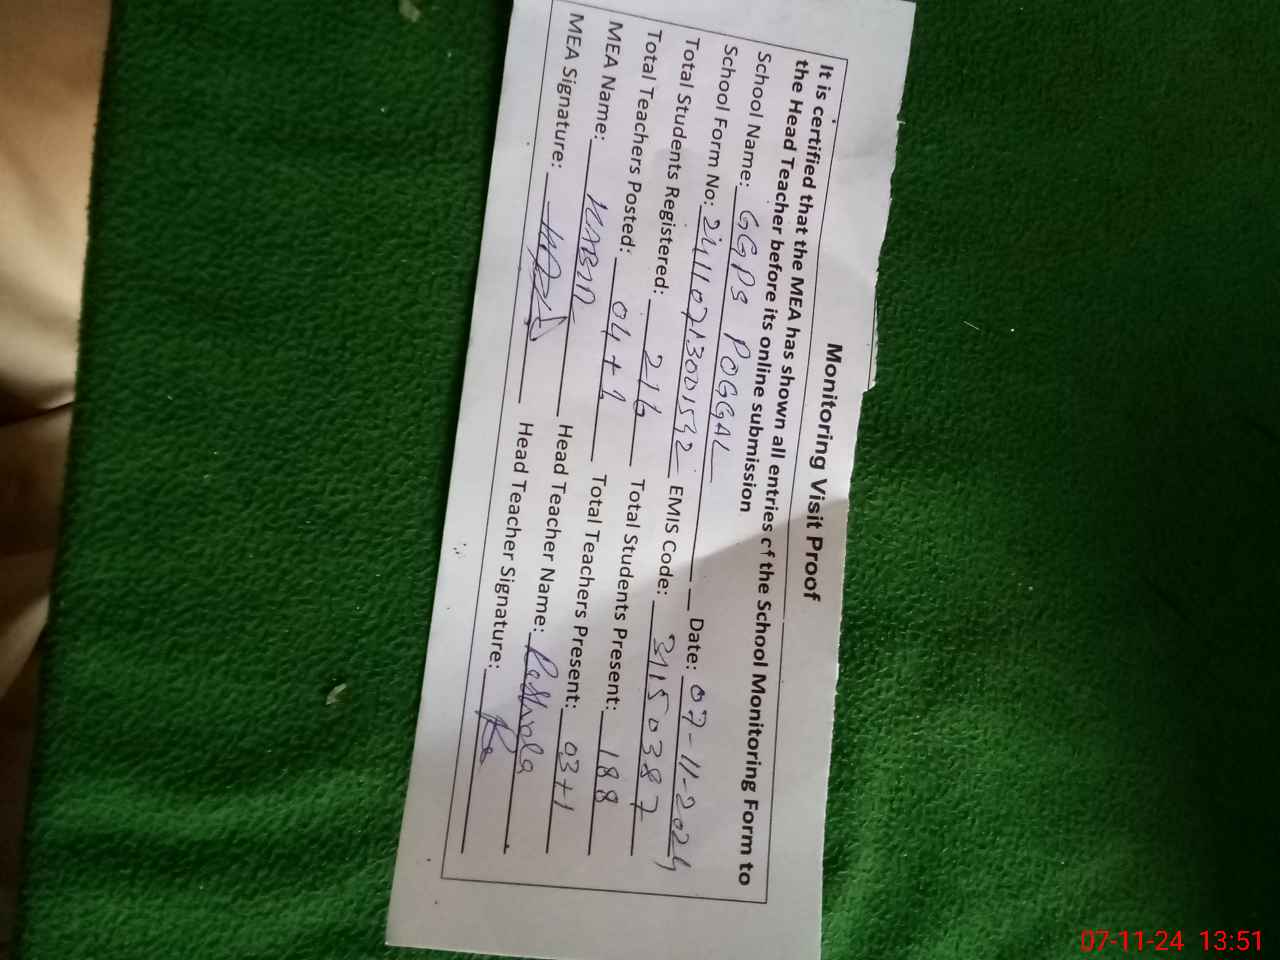 Monitoring Visit Proof
It is certified that the MEA has shown all entries of the School Monitoring Form to
the Head Teacher before its online submission
School Name: GGPS POGGAL Date: 07-11-2024
School Form No: 24110713001592 EMIS Code: 31150387
Total Students Registered: 216 Total Students Present: 188
Total Teachers Posted: 04+1 Total Teachers Present: 03+1
MEA Name: KABIR Head Teacher Name:
MEA Signature: Head Teacher Signature:
07-11-24 13:51